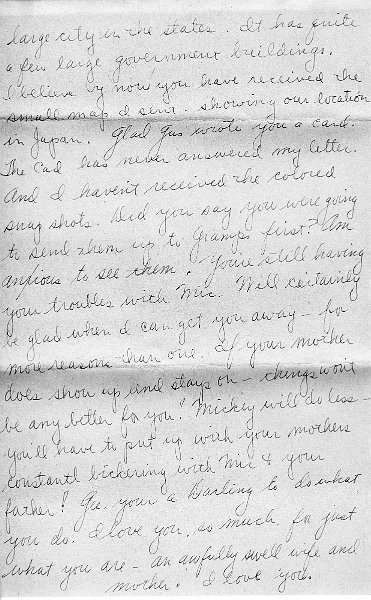 large city in the states. It has quite
a few large government buildings.
I believe by now you have received the
small map I sent. showing our location
in Japan. Glad Gus wrote you a card.
The Cad has never answered my letter.
And I haven't received the colored
snap shots. Did you say you were going
to send them up to Gramps first? Am
anxious to see them. You're still having
your troubles with Mic. Will certainly
be glad when I can get you away - for
more reasons than one. If your mother
does show up and stays on - things won't
be any better for you! Mickey will do less -
you'll have to put up with your mothers
constantl bickering with Mic & your
father! Ge. your a Darling to do what
you do. I love you, so much, for just
what you are - an awfully swell wife and
mother. I love you.